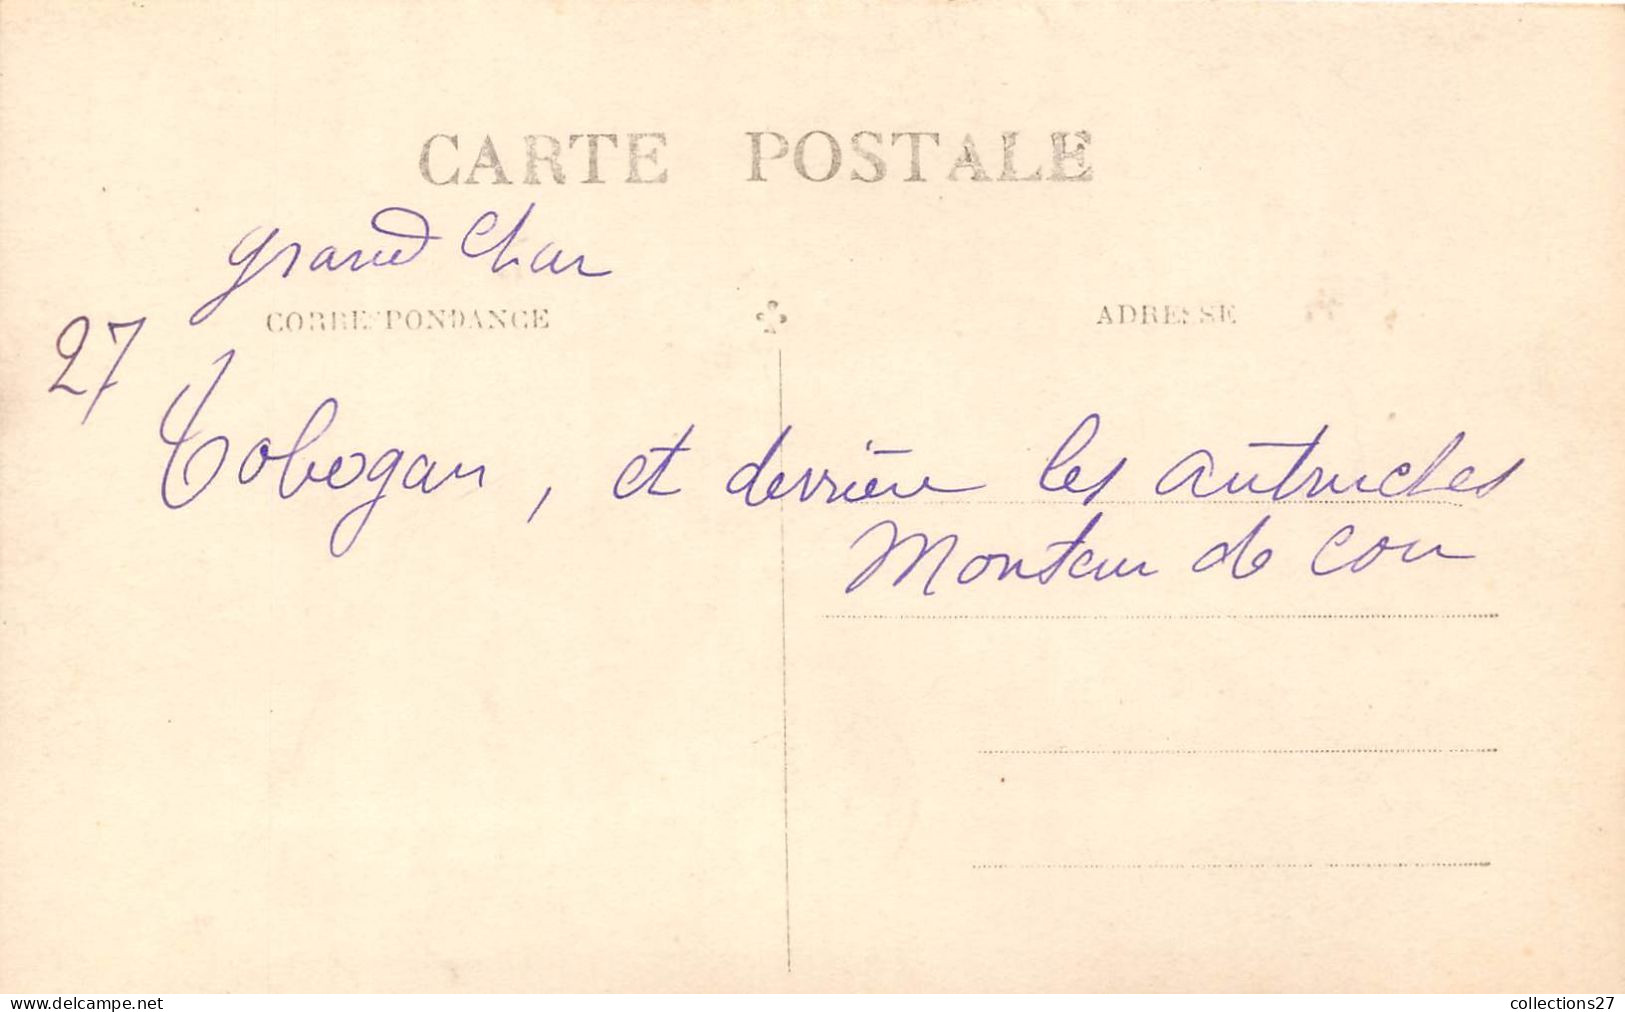 CARTE POSTALE
grand Char
CORRESPONDANCE
ADRESSE
27
Tobogan, et derrière les autruches
Monteur de cou
www.delcampe.net
collections27